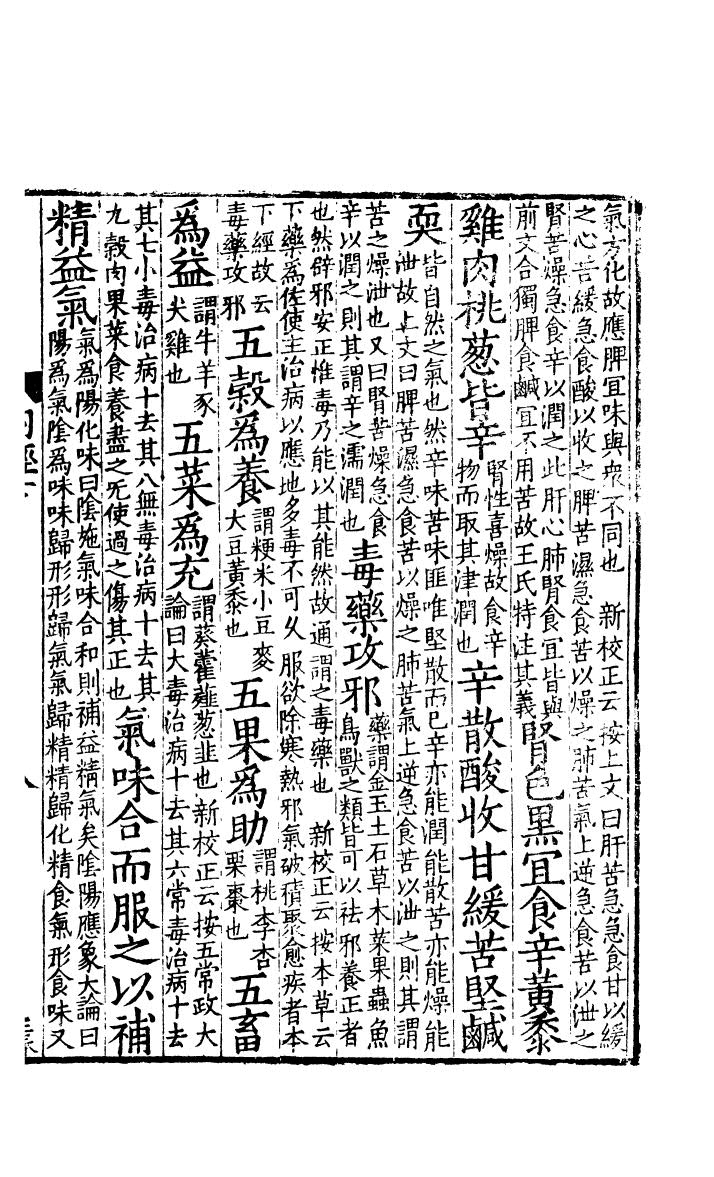 氣方化故應脾宜味與衆不同也　新校正云按上文曰肝苦急急食甘以緩
之心苦緩急食酸以收之脾苦濕急食苦以燥之肺苦氣上逆急食苦以泄之
腎苦燥急食辛以潤之此肝心肺腎食宜皆與
前文合獨脾食鹹宜不用苦故王氏特注其義
腎色黑宜食辛黃黍
雞肉桃葱皆辛
腎性喜燥故食辛
物而取其津潤也
辛散酸收甘緩苦堅鹹
耎
皆自然之氣也然辛味苦味匪唯堅散而已辛亦能潤能散苦亦能燥能
泄故上文曰脾苦濕急食苦以燥之肺苦氣上逆急食苦以泄之則其謂
苦之燥泄也又曰腎苦燥急食
辛以潤之則其謂辛之濡潤也
毒藥攻邪
藥謂金玉土石草木菜果蟲魚
鳥獸之類皆可以祛邪養正者
也然辟邪安正惟毒乃能以其能然故通謂之毒藥也　新校正云按本草云
下藥爲佐使主治病以應地多毒不可久服欲除寒熱邪氣破積聚愈疾者本
下經故云
毒藥攻邪
五穀爲養
謂粳米小豆麥
大豆黃黍也
五果爲助
謂桃李杏
栗棗也
五畜
爲益
謂牛羊豕
犬雞也
五菜爲充
謂葵藿薤葱韭也新校正云按五常政大
論曰大毒治病十去其六常毒治病十去
其七小毒治病十去其八無毒治病十去其
九穀肉果菜食養盡之旡使過之傷其正也
氣味合而服之以補
精益氣
氣爲陽化味曰陰施氣味合和則補益精氣矣陰陽應象大論曰
陽爲氣陰爲味味歸形形歸氣氣歸精精歸化精食氣形食味又